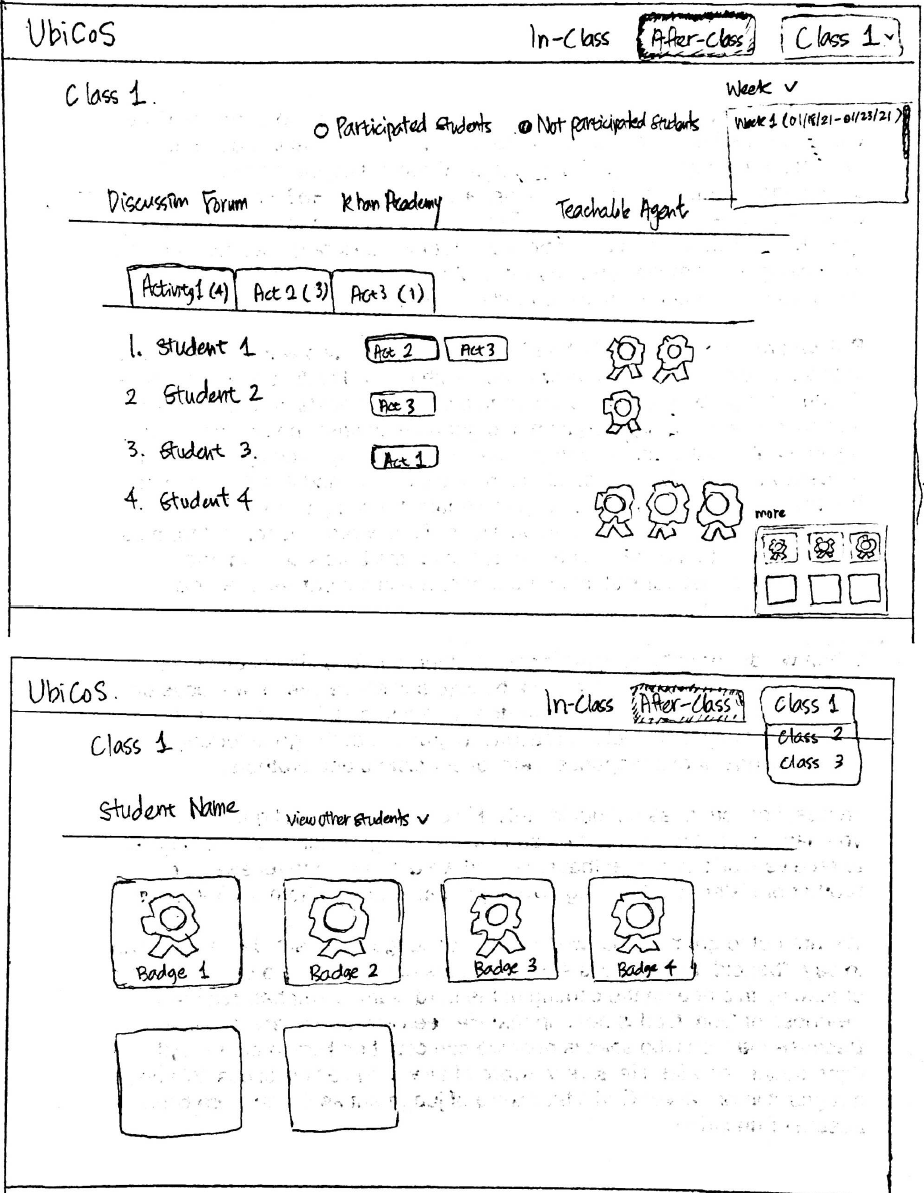 UbiCoS In-Class After-Class Class 1
Class 1.
Week
Participated Students Not participated Students
Week 1 (01/18/21-01/23/21)
Discussion Forum Khan Academy Teachable Agent
Activity1 (4) Act 2 (3) Act3 (1)
1. Student 1 Act 2 Act 3
2 Student 2 Act 3
3. Student 3. Act 1
4. Student 4
more
UbiCoS. In-Class After-Class Class 1
Class 2
Class 1 Class 3
Student Name View other students
Badge 1 Badge 2 Badge 3 Badge 4